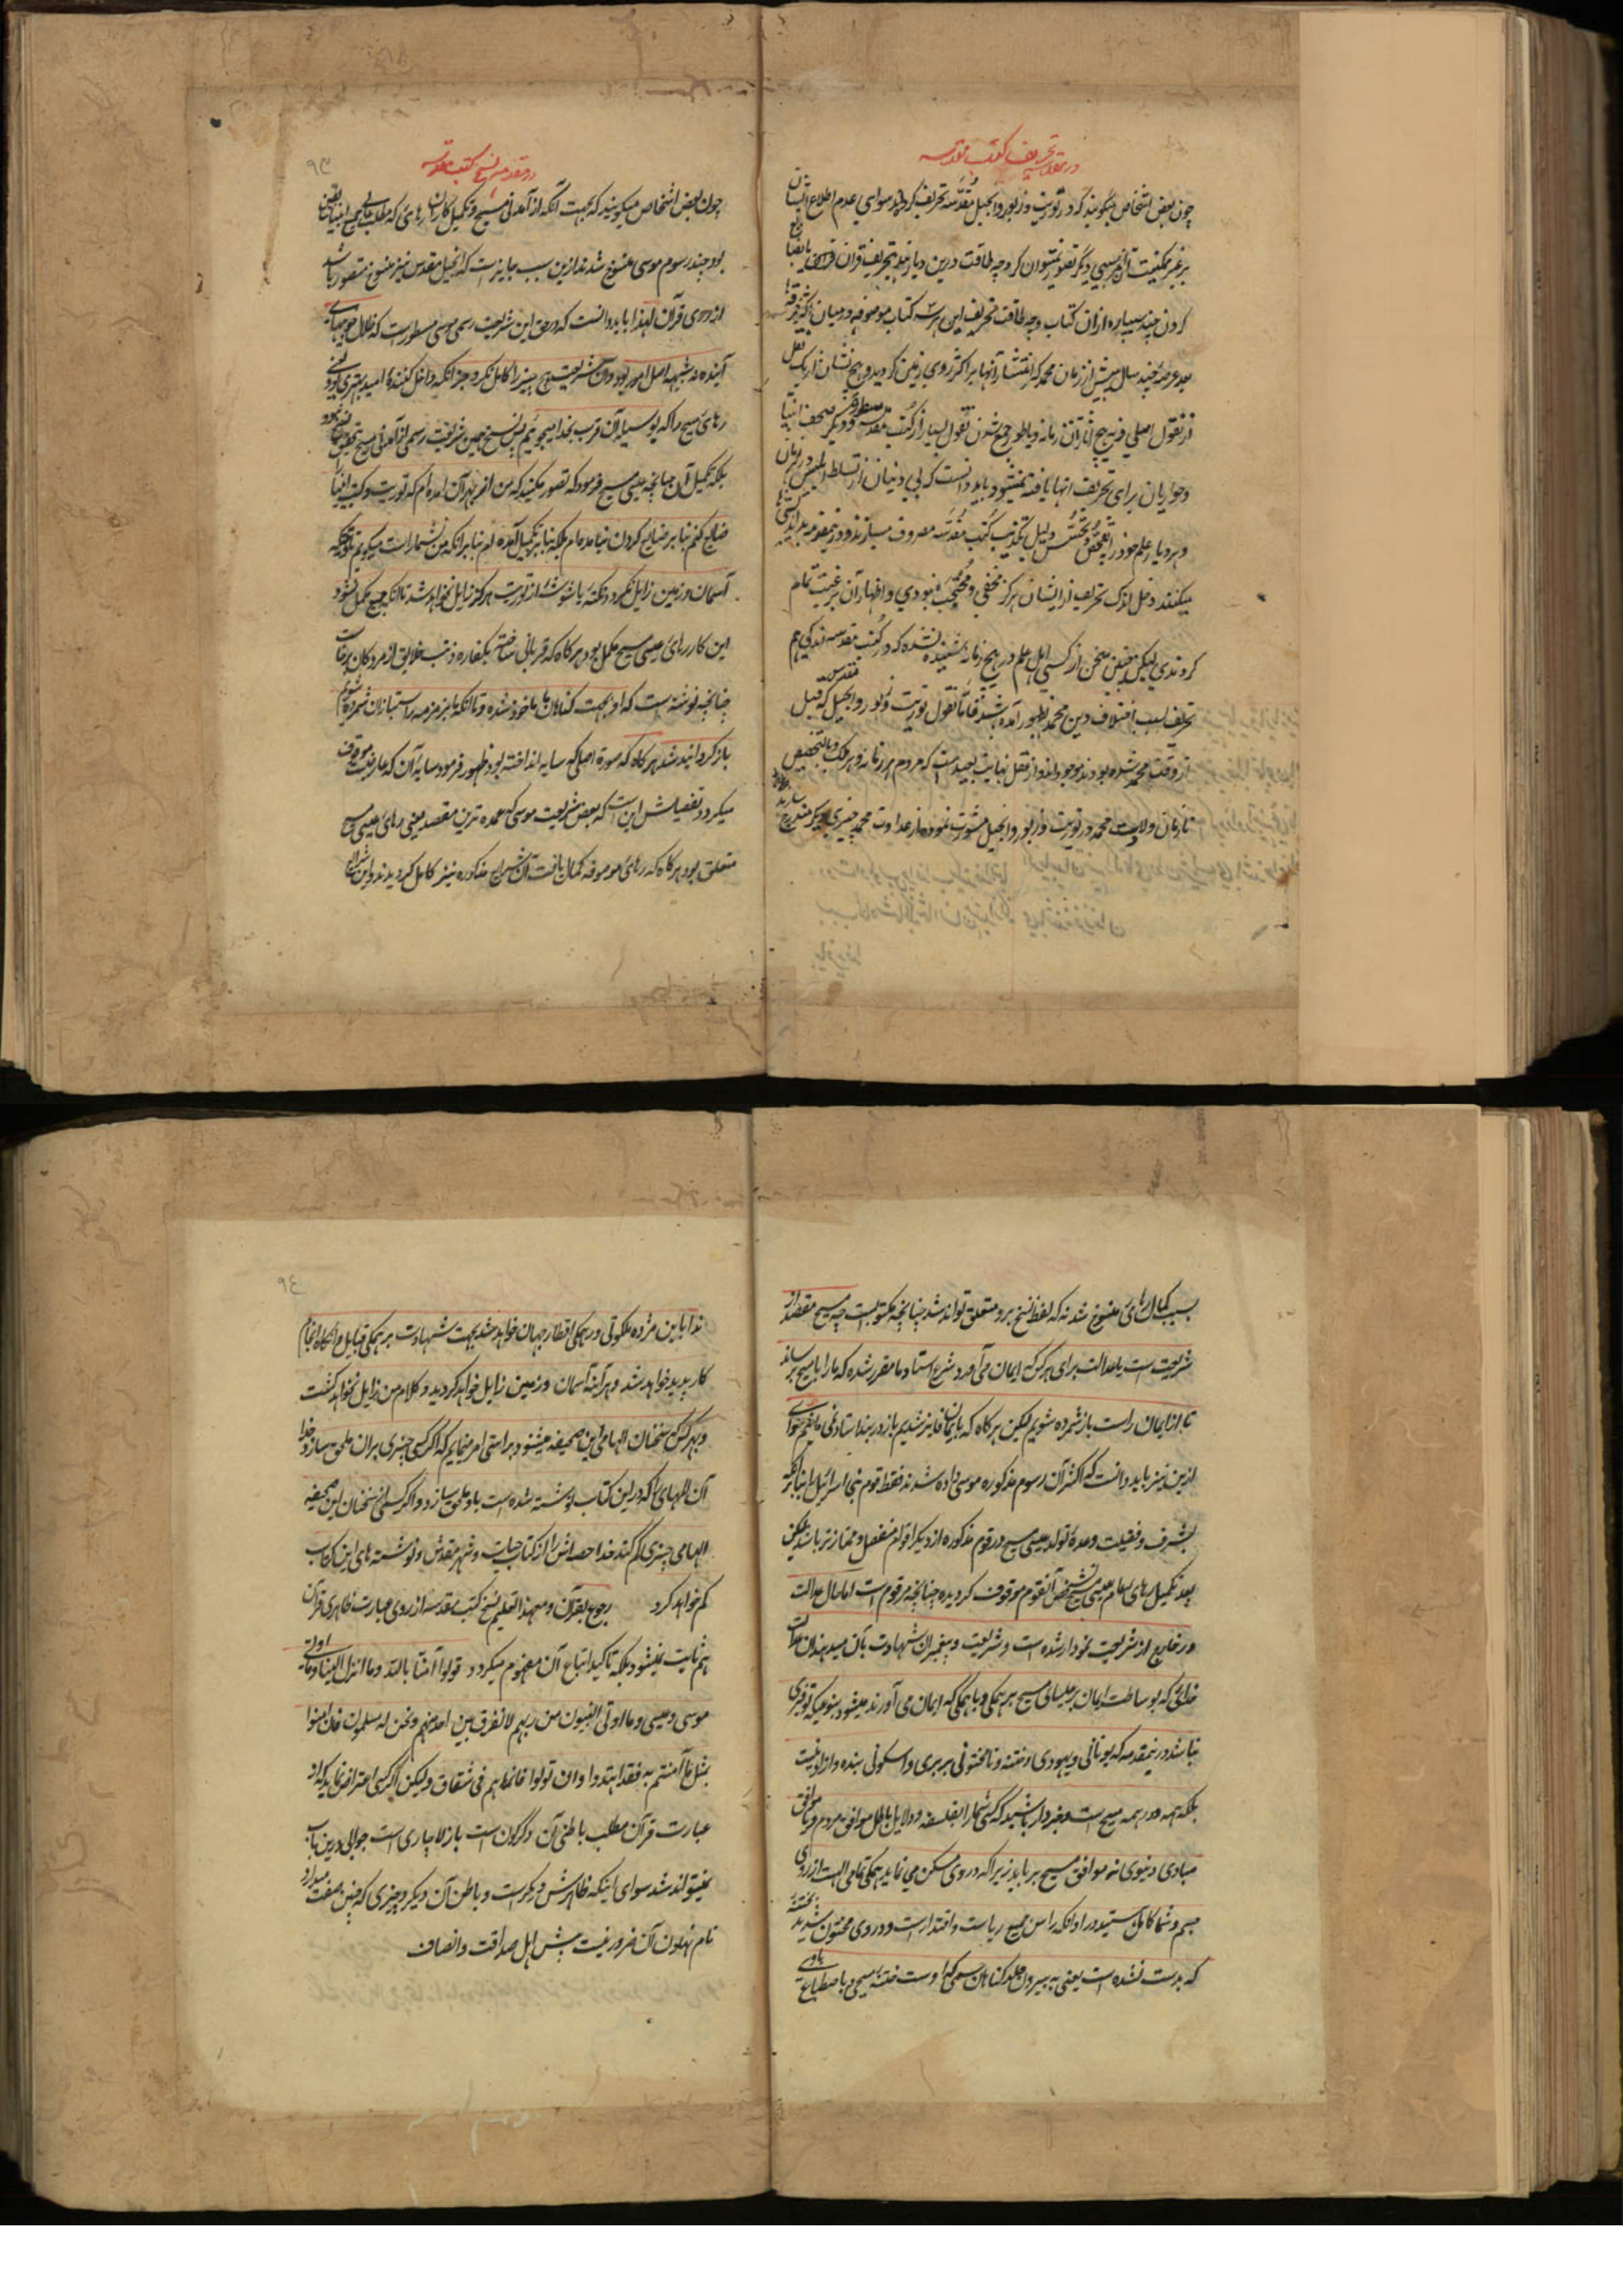 در مقدمه تحریف کتب مقدسه
چون بعض اشخاص میگویند که در توریت و زبور و انجیل مقدسه تحریف کرده‌اند سوای عدم اطلاع ایشان
بر غیر ممکنیت آن سببی دیگر تصور نمیتوان کرد چه طاقت درین دیار بود بتحریف قرآن
کردن چند سیپاره ازان کتاب و چه طاقت تحریف این هر سه کتاب موصوفه در میان
بعد عرصه چند سال پیش از زمان محمد که انتشار آنها بر اکثر روی زمین گردید و هیچ نشان از یک نقل
از نقول اصلی و نه هیچ آثار آن زمانه و یا طور جمع شدن نقول بسیار از کتب مقدسه مسطوره و دیگر صحف انبیا
و حواریان برای تحریف آنها یافته نمیشود باید دانست که بی دینان از تسلط ابلیس در هر زمان
و هر دیار علم خود را بتفحص و تجسس دلیل تکذیب کتب مقدسه مصروف میسازند و در ینمقدمه
میکنند دخل اندک تحریف از ایشان هرگز مخفی و محتجب نبودی و اظهار آن برغبت تمام
کردندی لیکن چنین سخن از کسی اهل علم در هیچ زمانه شنیده نشده که در کتب مقدسه اندکی هم
تحریف بسبب اختلاف دین محمد بظهور آمده باشد فاما نقول توریت و زبور و انجیل مقدس که قبل
از وقت محمد شده بودند موجود اند و از عقل نهایت بعید است که مردم هر زمانه و هر ملک بالتخصیص
تا زمان ولادت محمد در توریت و زبور و انجیل مشورت نموده از عداوت محمد چیزی دیگر مندرج سازند
در مقدمه نسخ کتب مقدسه
۹۳
چون بعض اشخاص میگویند که بجهت آنکه از آمدنی مسیح و تکمیل کار آن رهائی که مطلب
بود چند رسوم موسی منسوخ شدند ازین سبب جایز است که انجیل مقدس نیز منسوخ متصور باشد
از روی قرآن لهذا باید دانست که در حق این شریعت رسمی موسی مسطور است که ظلال خوبیهای
آینده نه شبیهه اصل امور بود و آن شریعت هیچ چیز را کامل نکرد جز آنکه داخل کننده امید بهتری بود
رهائی مسیح را که بوسیله آن قرب بخدا میجوئیم پس نسخ همین شریعت رسمی از آمدنی مسیح
بلکه تکمیل آن چنانچه عیسی مسیح فرمود که تصور مکنید که من از بهر آن آمده‌ام که توریت و کتب انبیا را
ضایع کنم بنابر ضایع کردن نیامده‌ام بلکه بنابر تکمیل آمده‌ام بنابر آنکه من بشما راست میگویم تا وقتیکه
آسمان و زمین زایل نگردد نکته یا شوشه از توریت هرگز زایل نخواهد شد تا آنکه جمیع مکمل نشود
این کار رهائی عیسی مسیح مکمل بود هر گاه که قربانی ساخت بکفاره ذنب خلایق از مردگان برخاست
چنانچه نوشته است که او بجهت گناهان ما ماخوذ شده و تا آنکه ما نیز در زمره راستبازان شمرده شویم
باز گردانیده شد هر گاه که صورة اصلی که سایه انداخته بود ظهور فرمود سایه آن که عارضیت موقوف
میگردد تفصیلش این است که بعض شریعت موسی که عمده ترین مقصد یعنی رهائی عیسی مسیح
متعلق بود هر گاه که رهائی موصوفه کمال یافت آن شرایع مذکوره نیز کامل گردیدند و این شرایع
بسبب کمال رهائی منسوخ شد نه که لفظ نسخ برو متعلق تواند شد چنانچه مکتوبست چه مسیح مقصد از
شریعت است بعدالت برای هر کس که ایمان می آورد شرع استاد ما مقرر شده که ما را با مسیح برساند
تا از ایمان راست باز شمرده شویم لیکن هر گاه که بایمان فایز شدیم باز در بند استاد نمی مانیم سوای
ازین نیز باید دانست که اکثر آن رسوم مذکوره موسی داده شدند فقط قوم بنی اسرائیل را بنابر آنکه
بشرف و فضیلت وعده تولد عیسی مسیح در قوم مذکوره از دیگر اقوام منفصل و ممتاز تر باشد لیکن
بعد تکمیل رهائی بعالم عیسی مسیح تشخص آنقوم موقوف گردیده چنانچه مرقوم است اما الحال عدالت
در خارج از شریعت نمودار شده است و شریعت و پیغمبران شهادت بآن میدهند آن عدالت
خدائی که بوساطت ایمان بر عیسای مسیح بر همگی و با همگی که ایمان می آورند میشود بنوعیکه توفیری
نباشد در ینمقدمه که یونانی و یهودی و ختنه و نامختونی بربری و اسکوتی بنده و آزاد نیست
بلکه همه و در همه مسیح است و خبردار باشید که کسی شما را بفلسفه و دلایل باطل موافق مردم و یا موافق
مبادی دنیوی نه موافق مسیح برباید زیرا که در وی سکن می نماید همگی تمامی الهیت از روی
جسم و شما کامل هستید در او آنکه راس جمیع ریاست و اقتدار است و در وی مختون شدید بختنه
که بدست نشده است یعنی به بیرون جلد گناهان جسمی که او است ختنه مسیحی و باصطباغ با وی
۹۴
ندا باین مژده ملکوتی در همگی اقطار جهان خواهد شد بجهت شهادت بر همگی قبایل و آنگاه انجام
کار پدید خواهد شد و هر آینه آسمان و زمین زایل خواهد گردید و کلام من زایل نخواهد گشت
و بهر کس که سخنان الهامی این صحیفه میشنود براستی امر مینمایم که اگر کسی چیزی بر آن ملحق سازد خدا
آن بلاهای را که در این کتاب نوشته شده است باو ملحق سازد و اگر کسی از سخنان این صحیفه
الهامی چیزی کم کند خدا حصه اش را از کتاب حیات و شهر مقدس و نوشته های این کتاب
کم خواهد کرد رجوع بقرآن و معهذا تعلیم نسخ کتب مقدسه از روی عبارت ظاهری قرآن
هم ثابت نمیشود بلکه تاکید اتباع آن مفهوم میگردد قولوا آمنا بالله و ما انزل الینا و ما اوتی
موسی و عیسی و ما اوتی النبیون من ربهم لا نفرق بین احد منهم و نحن له مسلمون فان آمنوا
بمثل ما آمنتم به فقد اهتدوا و ان تولوا فانما هم فی شقاق ولیکن اگر کسی اعتراض نماید که از
عبارت قرآن مطلب باطنی آن دگرگون است باز لاچاری است جوابی درین باب
نمیتواند شد سوای اینکه ظاهرش دیگر است و باطن آن دیگر و چیزی که چنین صفت میدارد
نام نهادن آن ضرور نیست پیش اهل صداقت و انصاف